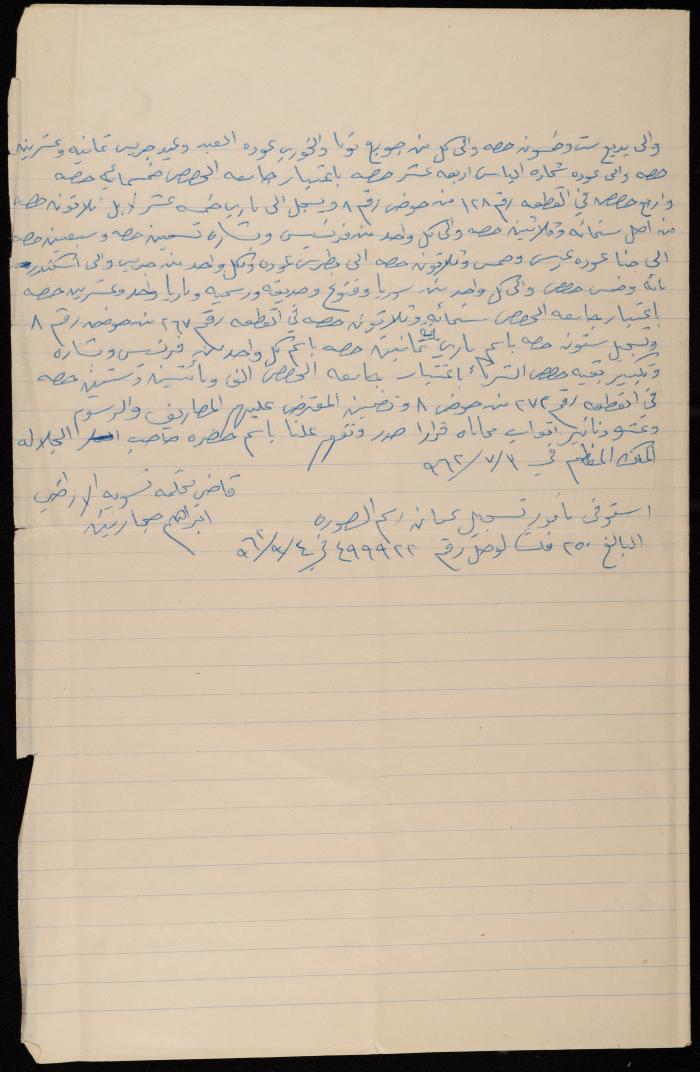 والى بديع ست وخمسون حصه والى كل من جريس توما والخوري عوده العبد وعيد جريس ثمانيه وعشرين
حصه والى عوده شحاده الياس اربعه عشر حصه باعتبار جامعه الحصص خمسمائه حصه
واربع حصص في القطعه رقم ١٢٨ من حوض رقم ٨ ويسجل الى خمسه عشر بدل ثلاثون حصه
من اصل ستمائه وثلاثين حصه والى كل واحد من فرنسيس وبشاره تسعين حصه وسبعين حصه
الى حنا عوده عيسى وخمس وثلاثون حصه الى بطرس عوده وكل واحد من جريس والى اسكندر
مائه وخمس حصص والى كل واحد من سوريا وفتوح وصديقه ورسميه وماريا واحد وعشرين حصه
باعتبار جامعه الحصص ستمائه وثلاثون حصه في القطعه رقم ٢٦٧ من حوض رقم ٨
وتسجيل ستون حصه باسم ثمانين حصه باسم كل واحد من فرنسيس وبشاره
وتكبير بقيه حصص الشركاء باعتبار جامعه الحصص الفي ومائتين وستين حصه
في القطعه رقم ٢٧٢ من حوض ٨ وتضمين المعترض عليهم المصاريف والرسوم
وعشر دنانير اتعاب محاماه قرارا صدر وتفهم علنا باسم حضره صاحب الجلاله
الملك المعظم في ٣/٧/٩٦٢
قاضي محكمه تسويه الاراضي
ابراهيم
استوفى مأمور تسجيل عمان رسم الصوره
البالغ ٢٥٠ فلسا لوصل رقم ٤٩٩٩٢٢ في ٤/٩/٩٦٢